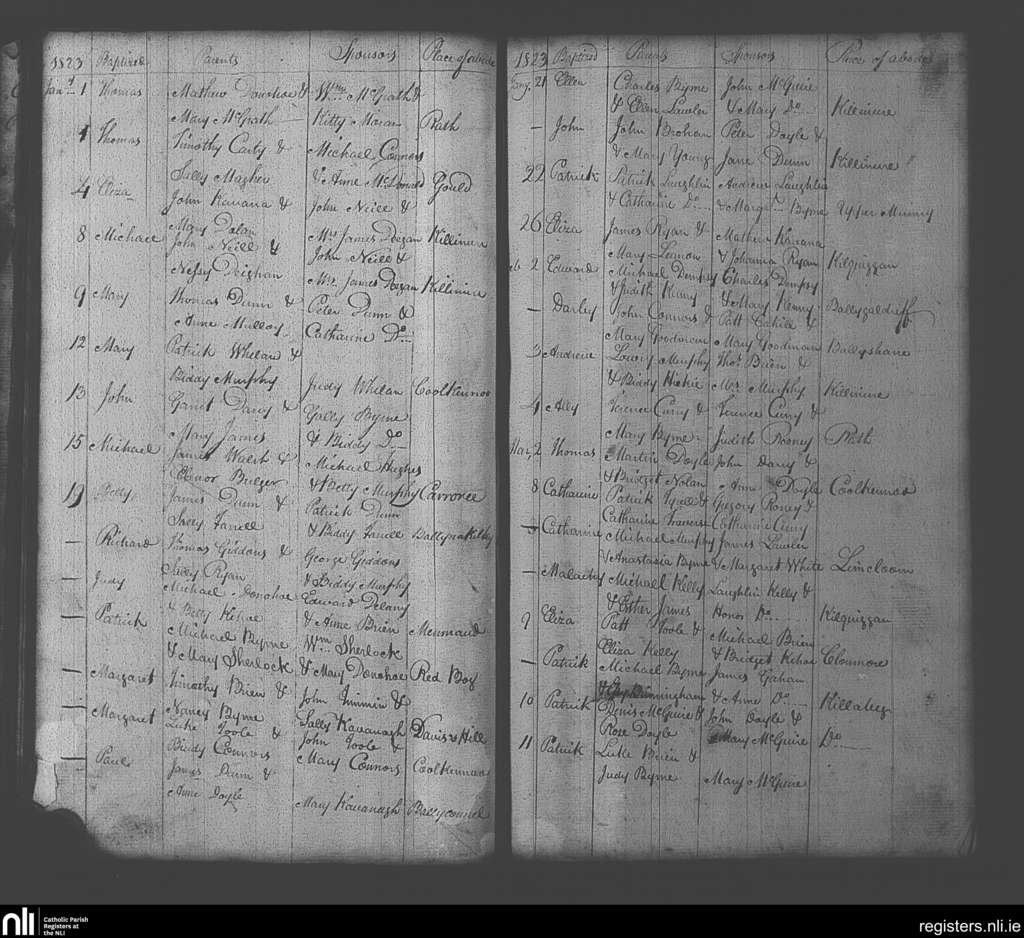 1823 Baptized Parents Sponsors Place of abode
Jany. 1 Thomas Mathew Donohoe & Wm. McGrath &
Mary McGrath Kitty Moran Rath
1 Thomas Timothy Carty & Michael Connors
Sally Magher & Anne McDonald Gould
4 Eliza John Kavana & John Neill &
Mary Dalan Mrs James Deegan Killinure
8 Michael John Neill & John Neill &
Nessy Deighan Mrs. James Deegan Killinure
9 Mary Thomas Dunn & Peter Dunn &
Anne Mulloy Catharine Do.
12 Mary Patrick Whelan &
Biddy Murphy Judy Whelan Coolkennoo
13 John Garret Darcy & Gally Byrne
Mary James & Biddy Do
15 Michael James Walsh & Michael Hughes
Elenor Bulger & Betty Murphy Carroree
19 Betty James Dunn & Patrick Dunn
Sally Farrell & Biddy Farrell BallynaKilly
— Richard Thomas Giddons & George Giddons
Sally Ryan & Biddy Murphy
— Judy Michael Donohoe Edward Delany
& Betty Kehoe & Anne Brien Meumaud
— Patrick Michael Byrne Wm Sherlock
& Mary Sherlock & Mary Donohoe Red Bog
— Margaret Timothy Brien & John Timmin &
Nancy Byrne Sally Kavanagh Davis's Hill
— Margaret Luke Toole & John Toole &
Biddy Connors Mary Connors Coolkennoo
— Paul James Dunn &
Anne Doyle Mary Kavanagh Ballyconnel
1823 Baptized Parents Sponsors Place of abode
Jany. 21 Ellen Charles Byrne John McGuire
& Ellen Lawler & Mary Do. Killinure
— John John Brohan Peter Doyle &
& Mary Young Jane Dunn Killinure
22 Patrick Patrick Laughlin Andrew Laughlin
& Catharine Do. & Margt. Byrne Upper Munny
26 Eliza James Ryan & Mathew Kavana
Mary Lennon & Johanna Ryan Kilquiggan
Feb 2 Edward Michael Dempsy Charles Dempsy
& Judith Kenny & Mary Kenny Ballygalduff
— Darley John Connors & Patt Cahill &
Mary Goodman Mary Goodman Ballyshane
3 Andrew Lowry Murphy Thos. Brien &
& Biddy Hickie Mrs Murphy Killinure
4 Ally Terence Curry & Terence Curry &
Mary Byrne Judith Rooney Rath
Mar, 2 Thomas Martin Doyle John Darcy &
& Bridget Nolan Anne Doyle Coolkennoo
8 Catharine Patrick Tyrell & Gregory Roney &
Catharine Catharine Curry
— Catharine Michael Murphy James Lawler
& Anastasia Byrne & Margaret White Limcloom
— Malachy Michael Kelly Laughlin Kelly &
& Esther James Honor Do. Kilquiggan
9 Eliza Patt Toole & Michael Brien
Eliza Kelly & Bridget Kehoe Clonmore
— Patrick Michael Byrne James Gahan
& Birmingham & Anne Do. Killabeg
10 Patrick Denis McGuire & John Doyle &
Rose Doyle Mary McGuire Do.
11 Patrick Luke Brien &
Judy Byrne Mary McGuire
nli Catholic Parish
Registers at
the NLI
registers.nli.ie